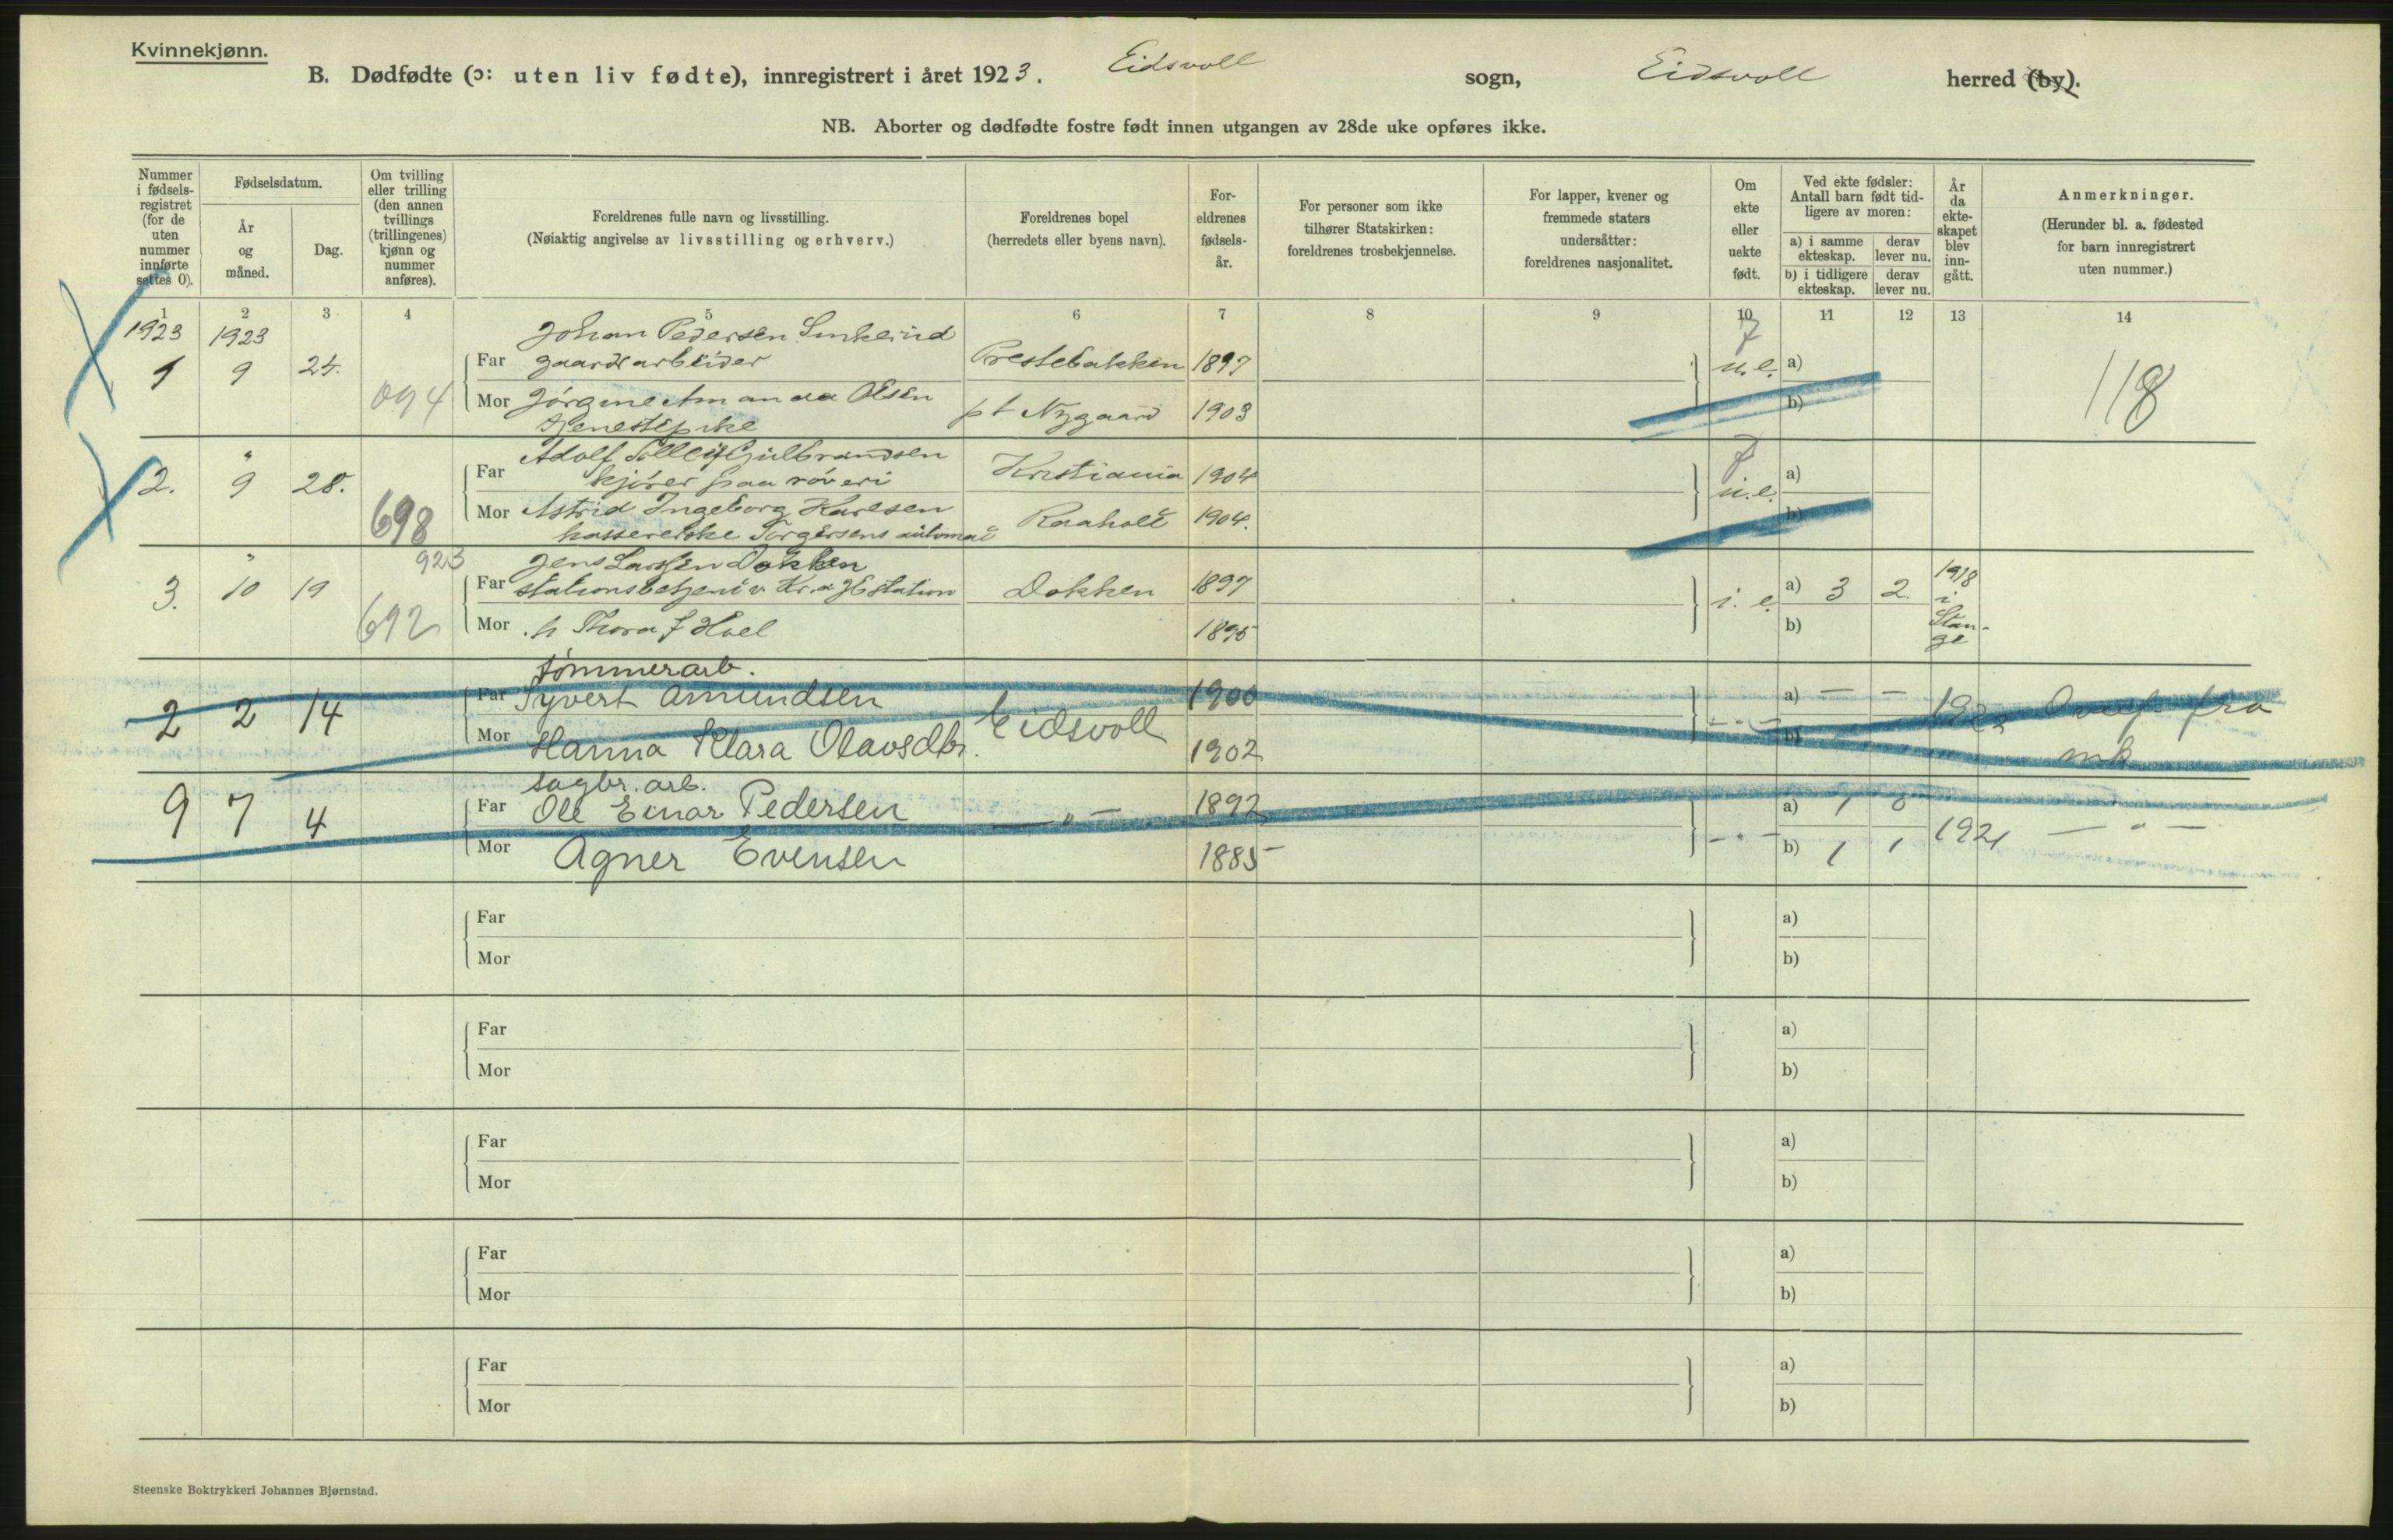 Kvinnekjønn.
B. Dødfødte (ɔ: uten liv fødte), innregistrert i året 1923. Eidsvoll sogn, Eidsvoll herred (by).
NB. Aborter og dødfødte fostre født innen utgangen av 28de uke opføres ikke.
Nummer i fødsels-registret (for de uten nummer innførte settes 0).
Fødselsdatum.
År og måned.
Dag.
Om tvilling eller trilling (den annen tvillings (trillingenes) kjønn og nummer anføres).
Foreldrenes fulle navn og livsstilling.
(Nøiaktig angivelse av livsstilling og erhverv.)
Foreldrenes bopel
(herredets eller byens navn).
For-eldrenes fødsels-år.
For personer som ikke tilhører Statskirken: foreldrenes trosbekjennelse.
For lapper, kvener og fremmede staters undersåtter: foreldrenes nasjonalitet.
Om ekte eller uekte født.
Ved ekte fødsler: Antall barn født tid-ligere av moren:
a) i samme ekteskap.
derav lever nu.
b) i tidligere ekteskap.
derav lever nu.
År da ekte-skapet blev inn-gått.
Anmerkninger.
(Herunder bl. a. fødested for barn innregistrert uten nummer.)
1 2 3 4 5 6 7 8 9 10 11 12 13 14
1923 1923 Johan Pedersen
1 9 24. Far gaardsarbeider Prestebakken 1897 u.e. a)
094 Mor Jørgine Amanda Olsen pt Nygaard 1903 b) 118
tjenestepike
" Adolf Gulbrandsen
2. 9 28. Far kjører paa Kristiania 1904 u.e. a)
698 Mor Astrid Ingeborg Karlsen Raaholt 1904. b)
kassererske Torgersens automat
923
" Jens Larsen Dokken
3. 10 19 Far stationsbetjent v. Kr.a Østation Dokken 1897 i. e. a) 3 2. 1918 i Stan-ge
692 Mor h Thora J Hoel 1895 b)
tømmerarb.
2 2 14 Far Syvert Amundsen Eidsvoll 1900 - " - a) — — Overf fra
Mor Hanna Klara Olavsdtr. 1902 b) mk
sagbr. arb.
9 7 4 Far Ole Einar Pedersen — " — 1892 - " - a) 1 0 1921 — " —
Mor Agner Evensen 1885 b) 1 1
Far a)
Mor b)
Far a)
Mor b)
Far a)
Mor b)
Far a)
Mor b)
Far a)
Mor b)
Steenske Boktrykkeri Johannes Bjørnstad.